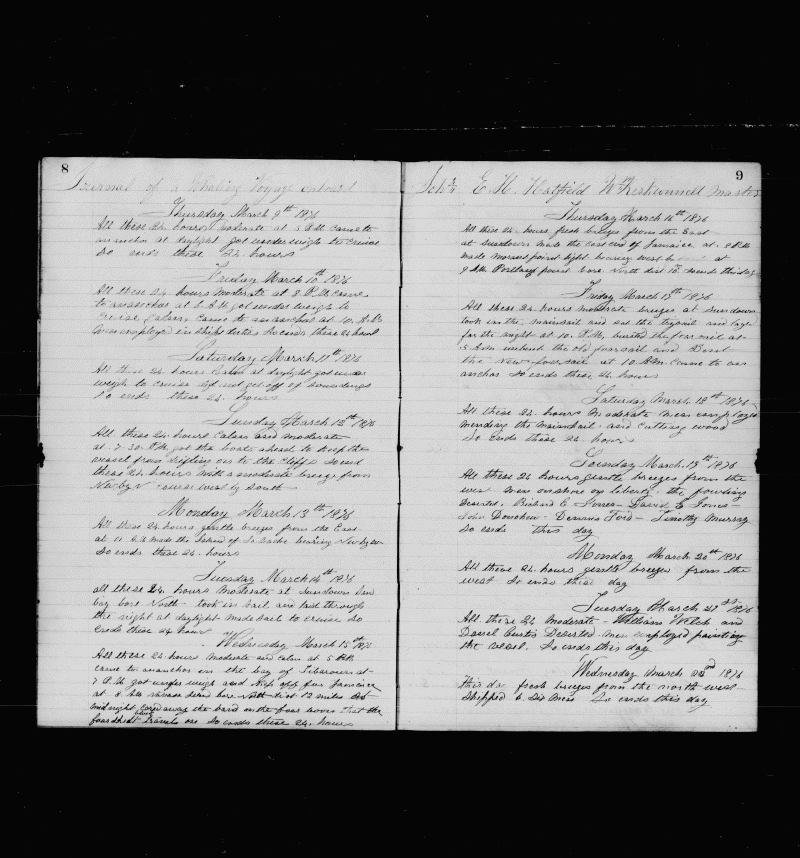 8
Journal of a Whaling Voyage onboard
Thursday March 9th 1876
All these 24 hours moderate at 5 P.M. came to
an anchor at daylight got under weigh to cruise
So ends these 24 hours
Friday March 10th 1876
All these 24 hours Moderate at 8 P.M. came
to an anchor at got under weigh to
Cruise Calm, came to an anchor at 10
Men employed in ships duties So ends these 24 hours
Saturday March 11th 1876
All these 24 hours Calm at daylight got under
weigh to cruise did not get off of
So ends these 24 hours
Sunday March 12th 1876
All these 24 hours Calm and moderate
at 7.30 P.M. got the boats ahead to keep the
vessel from drifting on to the Cliffs So end
these 24 hours with a moderate breeze from
course west by South
Monday March 13th 1876
All these 24 hours gentle breezes from the East
at 11 made the Island of bearing
So ends these 24 hours
Tuesday March 14th 1876
all these 24 hours Moderate at Sundown
bay bore North took in Sail and laid through
the night at daylight made Sail to cruise So
Ends these 24 hours
Wednesday March 15th 1876
All these 24 hours Moderate and Calm at 5 P.M.
came to an anchor in the bay of at
7 P.M. got under weigh and for Jamaica
at 8 bore North dist 12 miles at
midnight away the band on the fore boom that the
foresheet travels on So ends these 24 hours
9
Sch E. H. Hatfield Master
Thursday March 16th 1876
All these 24 hours fresh breezes from the East
at Sundown made the east end of Jamaica at 8 P.M.
made Morant point light bearing west at
9 point bore North dist So ends this day
Friday March 17th 1876
All these 24 hours moderate breezes at Sundown
took in the mainsail and set the trysail and
for the night at 10 P.M. busted the foresail at
5 A.M. unbent the old foresail and Bent
the New foresail at 10 A.M. Came to an
anchor So ends these 24 hours
Saturday March 18th 1876
All these 24 hours Moderate Men employed
mending the mainsail and cutting wood
So Ends these 24 hours
Sunday March 19th 1876
All these 24 hours gentle breezes from the
west Men on shore on liberty the following
Deserted Richard E David E Jones
John Donohew Dennis Ford Timothy Murray
So ends this day
Monday March 20th 1876
All these 24 hours gentle breezes from the
west So ends these day
Tuesday March 21st 1876
All these 24 Moderate William Welch and
Daniel Curtis Deserted Men employed painting
the vessel. So ends this day
Wednesday March 22nd 1876
this day fresh breezes from the north west
Shipped 6 Six Men So ends this day